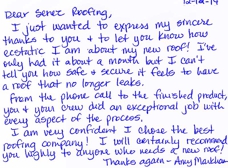 12-12-19
Dear Senez Roofing,
I just wanted to express my sincere
thanks to you & to let you know how
ecstatic I am about my new roof! I've
only had it about a month but I can't
tell you how safe & secure it feels to have
a roof that no longer leaks.
From the phone call to the finished product,
you & your crew did an exceptional job with
every aspect of the process.
I am very confident I chose the best
roofing company! I will certainly recommend
you highly to anyone who needs a new roof!
Thanks again - Amy Markham